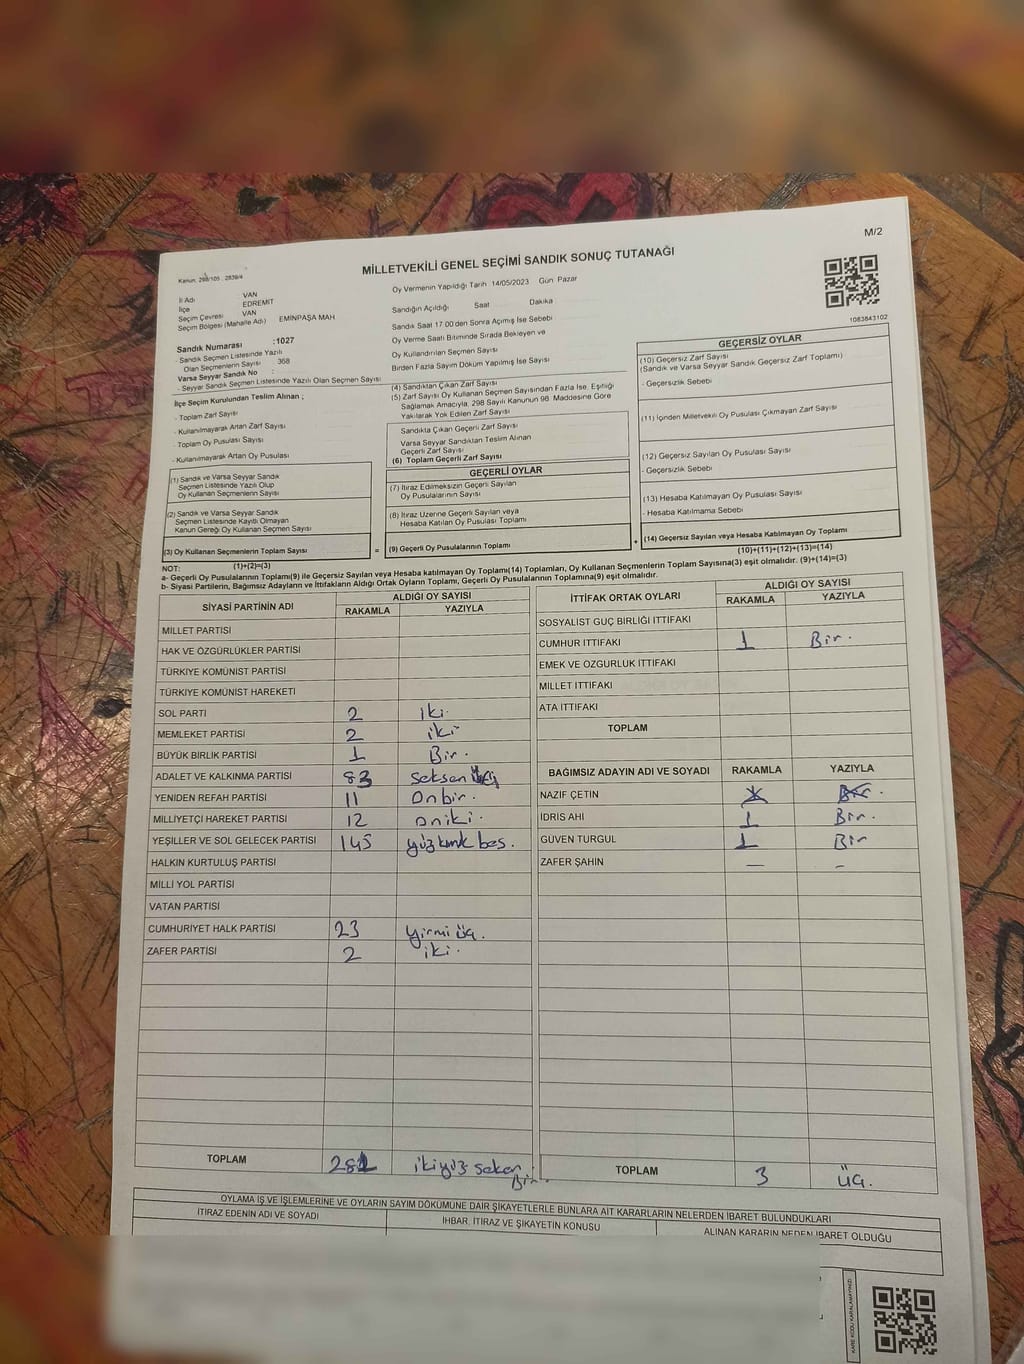 M/2
MİLLETVEKİLİ GENEL SEÇİMİ SANDIK SONUÇ TUTANAĞI
Kanun. 298/105 . 2839/4
1083843102
İl Adı : VAN
İlçe EDREMİT
Seçim Çevresi VAN
Seçim Bölgesi (Mahalle Adı) : EMİNPAŞA MAH
Sandık Numarası :1027
- Sandık Seçmen Listesinde Yazılı
Olan Seçmenlerin Sayısı 358
Varsa Seyyar Sandık No :
- Seyyar Sandık Seçmen Listesinde Yazılı Olan Seçmen Sayısı
İlçe Seçim Kurulundan Teslim Alınan ;
- Toplam Zarf Sayısı
- Kullanılmayarak Artan Zarf Sayısı
- Toplam Oy Pusulası Sayısı
- Kullanılmayarak Artan Oy Pusulası
(1) Sandık ve Varsa Seyyar Sandık
Seçmen Listesinde Yazılı Olup
Oy Kullanan Seçmenlerin Sayısı
(2) Sandık ve Varsa Seyyar Sandık
Seçmen Listesinde Kayıtlı Olmayan
Kanun Gereği Oy Kullanan Seçmen Sayısı
(3) Oy Kullanan Seçmenlerin Toplam Sayısı =
Oy Vermenin Yapıldığı Tarih : 14/05/2023 Gün: Pazar
Sandığın Açıldığı Saat Dakika
Sandık Saat 17:00'den Sonra Açılmış İse Sebebi
Oy Verme Saati Bitiminde Sırada Bekleyen ve
Oy Kullandırılan Seçmen Sayısı
Birden Fazla Sayım Döküm Yapılmış İse Sayısı
(4) Sandıktan Çıkan Zarf Sayısı
(5) Zarf Sayısı Oy Kullanan Seçmen Sayısından Fazla İse, Eşitliği
Sağlamak Amacıyla, 298 Sayılı Kanunun 98. Maddesine Göre
Yakılarak Yok Edilen Zarf Sayısı
Sandıkta Çıkan Geçerli Zarf Sayısı
Varsa Seyyar Sandıktan Teslim Alınan
Geçerli Zarf Sayısı
(6) Toplam Geçerli Zarf Sayısı
GEÇERLİ OYLAR
(7) İtiraz Edilmeksizin Geçerli Sayılan
Oy Pusulalarının Sayısı
(8) İtiraz Üzerine Geçerli Sayılan veya
Hesaba Katılan Oy Pusulası Toplamı
(9) Geçerli Oy Pusulalarının Toplamı +
GEÇERSİZ OYLAR
(10) Geçersiz Zarf Sayısı
(Sandık ve Varsa Seyyar Sandık Geçersiz Zarf Toplamı)
- Geçersizlik Sebebi
(11) İçinden Milletvekili Oy Pusulası Çıkmayan Zarf Sayısı
(12) Geçersiz Sayılan Oy Pusulası Sayısı
- Geçersizlik Sebebi
(13) Hesaba Katılmayan Oy Pusulası Sayısı
- Hesaba Katılmama Sebebi
(14) Geçersiz Sayılan veya Hesaba Katılmayan Oy Toplamı
NOT: (1)+(2)=(3) (10)+(11)+(12)+(13)=(14)
a- Geçerli Oy Pusulalarının Toplamı(9) ile Geçersiz Sayılan veya Hesaba katılmayan Oy Toplamı(14) Toplamları, Oy Kullanan Seçmenlerin Toplam Sayısına(3) eşit olmalıdır. (9)+(14)=(3)
b- Siyasi Partilerin, Bağımsız Adayların ve İttifakların Aldığı Ortak Oyların Toplamı, Geçerli Oy Pusulalarının Toplamına(9) eşit olmalıdır.
SİYASİ PARTİNİN ADI ALDIĞI OY SAYISI
RAKAMLA YAZIYLA
MİLLET PARTİSİ
HAK VE ÖZGÜRLÜKLER PARTİSİ
TÜRKİYE KOMÜNİST PARTİSİ
TÜRKİYE KOMÜNİST HAREKETİ
SOL PARTİ 2 iki.
MEMLEKET PARTİSİ 2 iki
BÜYÜK BİRLİK PARTİSİ 1 Bir.
ADALET VE KALKINMA PARTİSİ 83 seksen üç
YENİDEN REFAH PARTİSİ 11 Onbir.
MİLLİYETÇİ HAREKET PARTİSİ 12 oniki.
YEŞİLLER VE SOL GELECEK PARTİSİ 145 yüz kırk beş.
HALKIN KURTULUŞ PARTİSİ
MİLLİ YOL PARTİSİ
VATAN PARTİSİ
CUMHURİYET HALK PARTİSİ 23 yirmi üç.
ZAFER PARTİSİ 2 iki.
TOPLAM 281 ikiyüz seksen Bir.
İTTİFAK ORTAK OYLARI ALDIĞI OY SAYISI
RAKAMLA YAZIYLA
SOSYALİST GÜÇ BİRLİĞİ İTTİFAKI
CUMHUR İTTİFAKI 1 Bir.
EMEK VE ÖZGÜRLÜK İTTİFAKI
MİLLET İTTİFAKI
ATA İTTİFAKI
TOPLAM
ALDIĞI OY SAYISI
BAĞIMSIZ ADAYIN ADI VE SOYADI RAKAMLA YAZIYLA
NAZİF ÇETİN 1 Bir.
İDRİS AHİ 1 Bir.
GÜVEN TURGUL 1 Bir
ZAFER ŞAHİN — -
TOPLAM 3 üç.
OYLAMA İŞ VE İŞLEMLERİNE VE OYLARIN SAYIM DÖKÜMÜNE DAİR ŞİKAYETLERLE BUNLARA AİT KARARLARIN NELERDEN İBARET BULUNDUKLARI
İTİRAZ EDENİN ADI VE SOYADI İHBAR, İTİRAZ VE ŞİKAYETİN KONUSU ALINAN KARARIN NEDEN İBARET OLDUĞU
KARE KODU KARALAMAYINIZ!